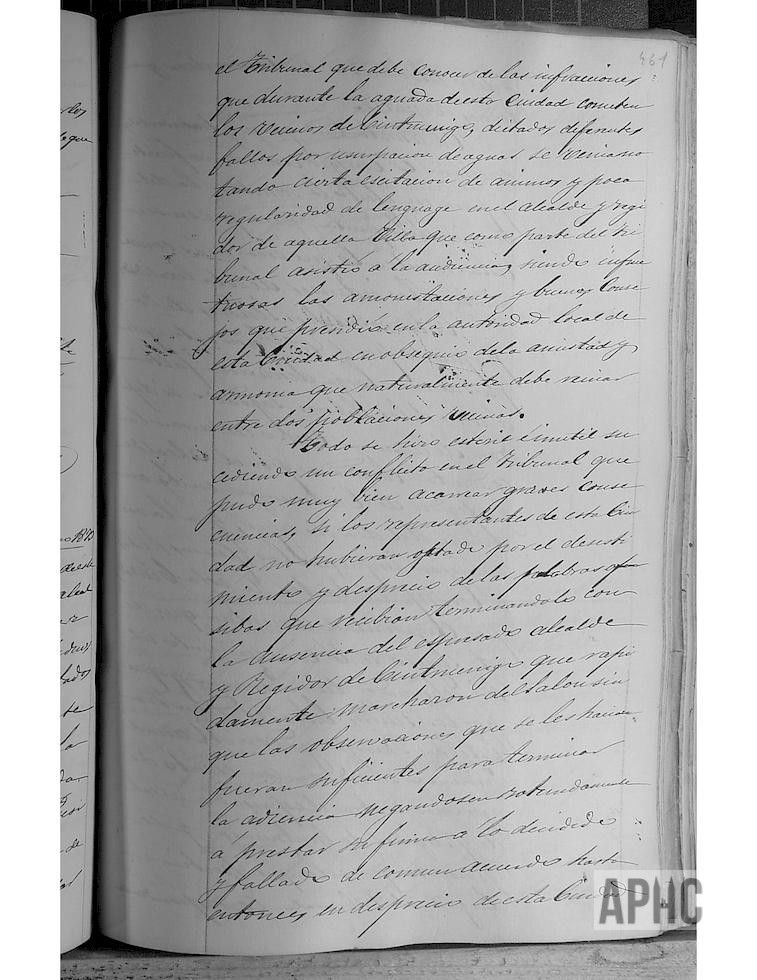 461
el Tribunal que debe conocer de las infracciones
que durante la aguada de esta Ciudad cometen
los vecinos de Cintruenigo, dictados diferentes
fallos por usurpacion de aguas se venia no
tando cierta escitacion de animos y poca
regularidad de lenguage en el alcalde y regi
dor de aquella Villa que como parte del tri
bunal asistió á la audiencia, siendo infruc
tuosas las amonestaciones y buenos conse
jos que prendió en la autoridad local de
esta Ciudad en obsequio de la amistad y
armonia que naturalmente debe reinar
entre dos poblaciones vecinas.
Todo se hizo esteril é inutil su
cediendo un conflicto en el tribunal que
pudo muy bien acarrear graves conse
cuencias, si los representantes de esta Ciu
dad no hubieran optado por el desesti
miento y desprecio de las palabras ofen
sibas que recibian terminandolo con
la ausencia del espresado alcalde
y Regidor de Cintruenigo que rapi
damente marcharon del salon sin
que las observaciones que se les hacian
fueran suficientes para terminar
la adiencia negandosen rotundamente
á prestar su firma á lo decidido
y fallado de comun acuerdo hasta
entonces en desprecio de esta Ciudad
APHC